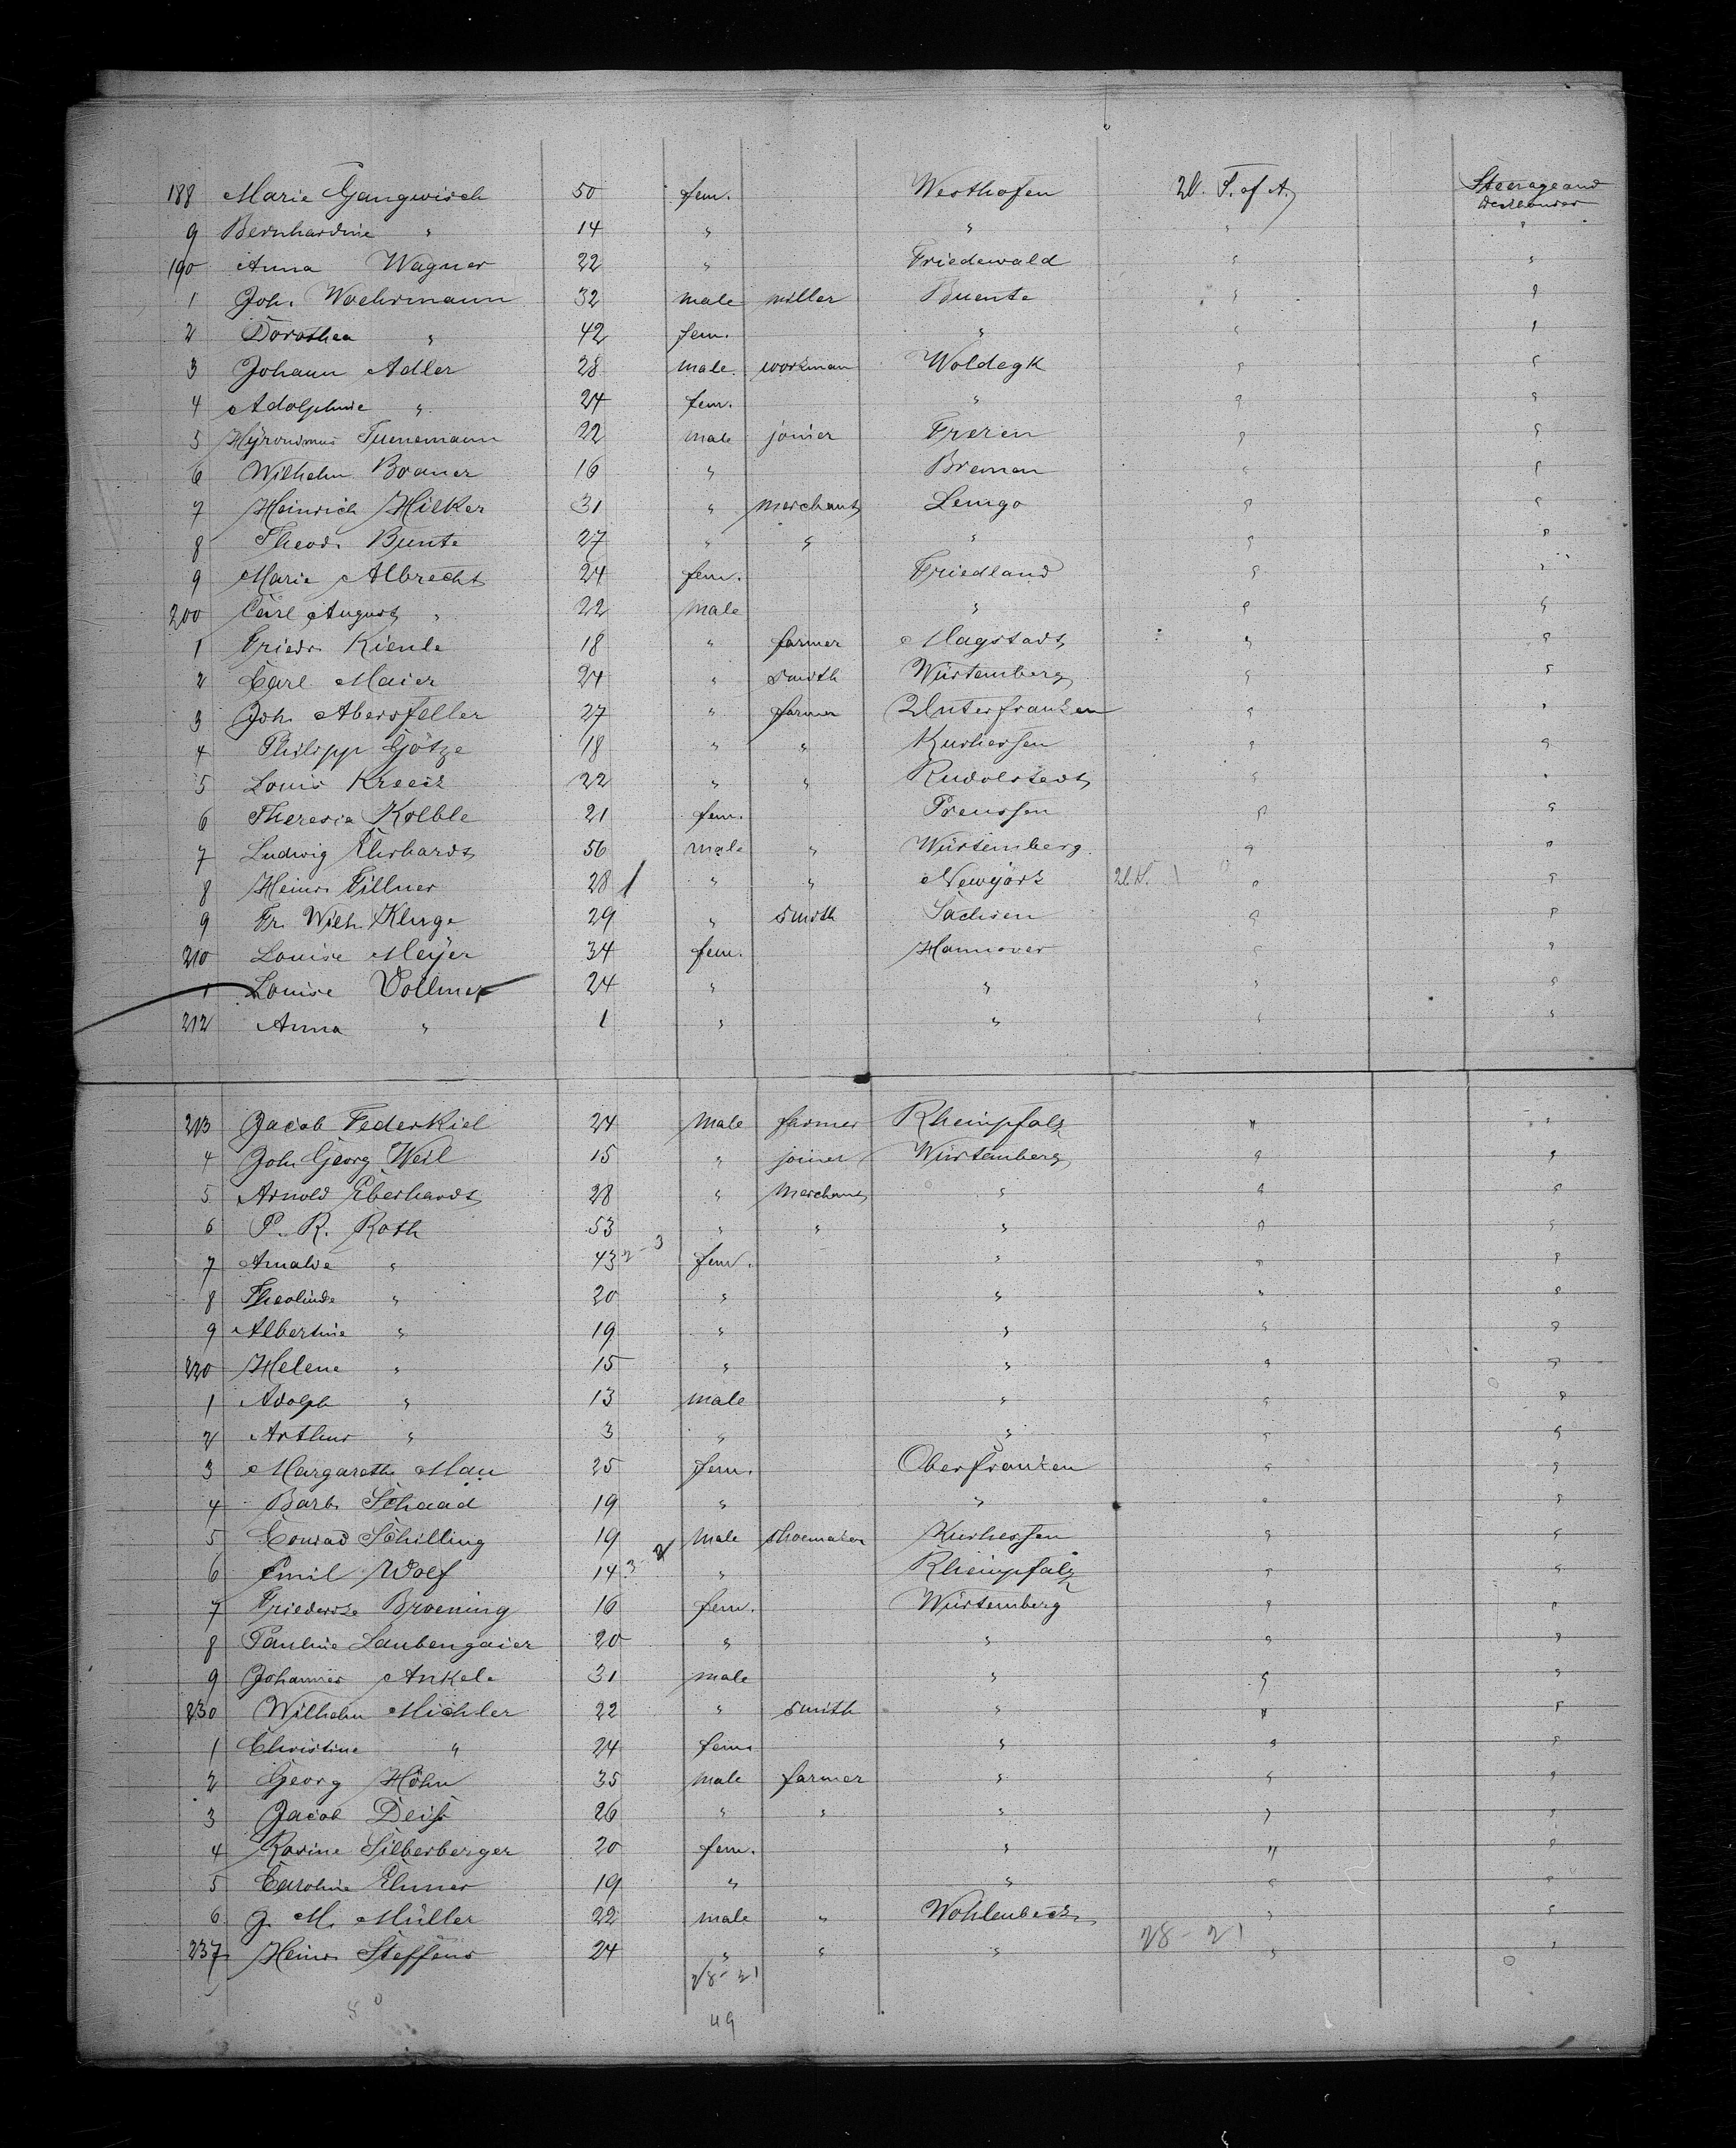 188 Marie Gangwisch 50 fem. Westhofen U. S. of A. Steerage and
9 Bernhardine " 14 " " " "
190 Anna Wagner 22 " Friedewald " "
1 Joh. Woehrmann 32 male miller Buente " "
2 Dorothea " 42 fem. " " "
3 Johann Adler 28 male workman Woldegk " "
4 Adolphine " 24 fem. " " "
5 Hÿronimus Tuenemann 22 male joiner Freren " "
6 Wilhelm Bramer 16 " Bremen " "
7 Heinrich Hilker 31 " merchant Lemgo " "
8 Theod. Bunte 27 " " " " "
9 Marie Albrecht 24 fem. Friedland " "
200 Carl August " 22 male " " "
1 Friedr. Kienle 18 " farmer Magstadt " "
2 Carl Maier 24 " smith Würtemberg " "
3 Joh. Abersfeller 27 " farmer Unterfranken " "
4 Philipp Götze 18 " " Kurhessen " "
5 Louis 22 " " Rudolstadt " "
6 Theresia Kolble 21 fem. Preussen " "
7 Ludwig Ehrhardt 56 male " Würtemberg " "
8 Heinr. Fillner 28 / " " Newÿork " "
9 Fr. Wilh. Kluge 29 " smith Sachsen " "
210 Louise Meÿer 34 fem. Hannover " "
1 Louise Vollmer 24 " " " "
212 Anna " 1 " " " "
213 Jacob Federkiel 24 male farmer Rheinpfalz " "
4 Joh. Georg Weil 15 " joiner Würtemberg " "
5 Arnold Eberhardt 28 " merchant " " "
6 P. R. Roth 53 " " " " "
7 Amalie " 43 2-3 fem. " " "
8 Theolinde " 20 " " " "
9 Albertine " 19 " " " "
220 Helene " 15 " " " "
1 Adolph " 13 male " " "
2 Arthur " 3 " " " "
3 Margareth Mau 25 fem. Oberfranken " "
4 Barb. Schaad 19 " " " "
5 Conrad Schilling 19 male shoemaker Kurhessen " "
6 Emil Wolf 14 3-2 " Rheinpfalz " "
7 Friedericke Broening 16 fem. Würtemberg " "
8 Pauline Laubengaier 20 " " " "
9 Johannes Ankele 31 male " " "
230 Wilhelm Michler 22 " smith " " "
1 Christine " 24 fem. " " "
2 Georg Höhn 35 male farmer " " "
3 Jacob Deiß 26 " " " " "
4 Rosine Silberberger 20 fem. " " "
5 Caroline Elmer 19 " " " "
6 J. M. Müller 22 male " Wohlenbeck " "
28-21
237 Heinr. Steffens 24 " " " " "
28-21
49